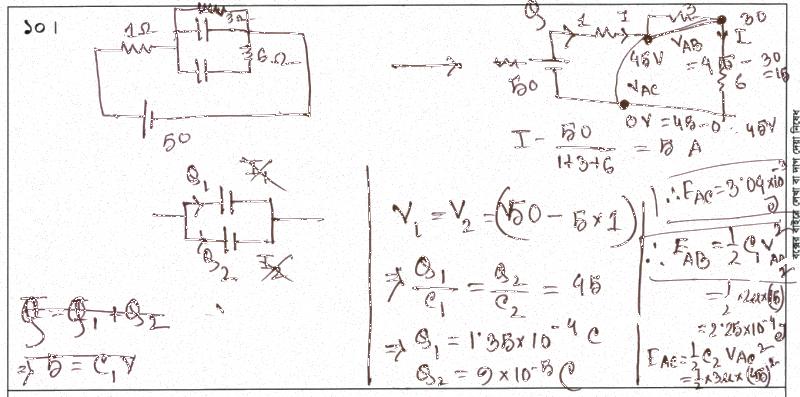 SOl
1Ω
3Ω
6Ω
50
Q 1 I 3 30
45V V_AB = 45 - 30 = 15
I
6
50
V_AC
0V = 45 - 0 = 45V
I - 50/(1+3+6) = 5 A
Q_1
Q_2
Q = Q_1 + Q_2
⇒ 5 = C_1 V
V_1 = V_2 = (50 - 5×1)
⇒ Q_1/C_1 = Q_2/C_2 = 45
⇒ Q_1 = 1.35×10^-4 C
Q_2 = 9×10^-5 C
∴ E_AC = 3.04×10^-3 J
∴ E_AB = 1/2 C_1 V_AB^2
= 1/2 × 2u×(15)^2
= 2.25×10^-4 J
E_AC = 1/2 C_2 V_AC^2
= 1/2 × 3u × (45)^2